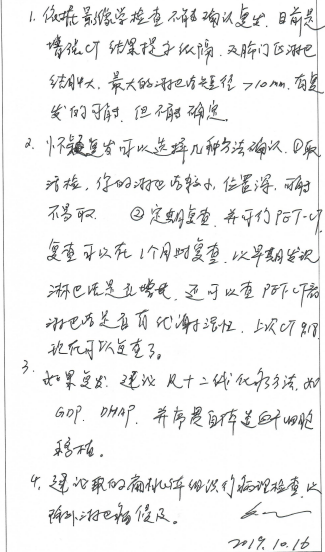 1. 依据影像学检查不能确认复发. 目前是
增强CT结果提示纵隔. 双肺门区淋巴
结肿大, 最大的淋巴结短径 >10mm. 有复
发的可能. 但不能确定
2. 怀疑复发可以选择几种方法确认. ①取
活检, 你的淋巴结较小, 位置深, 可能
不易取. ②定期复查, 并可行PET-CT.
复查可以在1个月时复查, 以早期发现
淋巴结是否增大, 还可以查PET-CT看
淋巴结是否有代谢活性. 上次CT 9.18,
现在可以复查了.
3.
如果复发. 建议 R+二线化疗方法, 如
GDP. DHAP. 并序贯自体造血干细胞
移植.
4. 建议取的扁桃体组织行病理检查, 以
除外淋巴瘤侵及.
2019.10.16